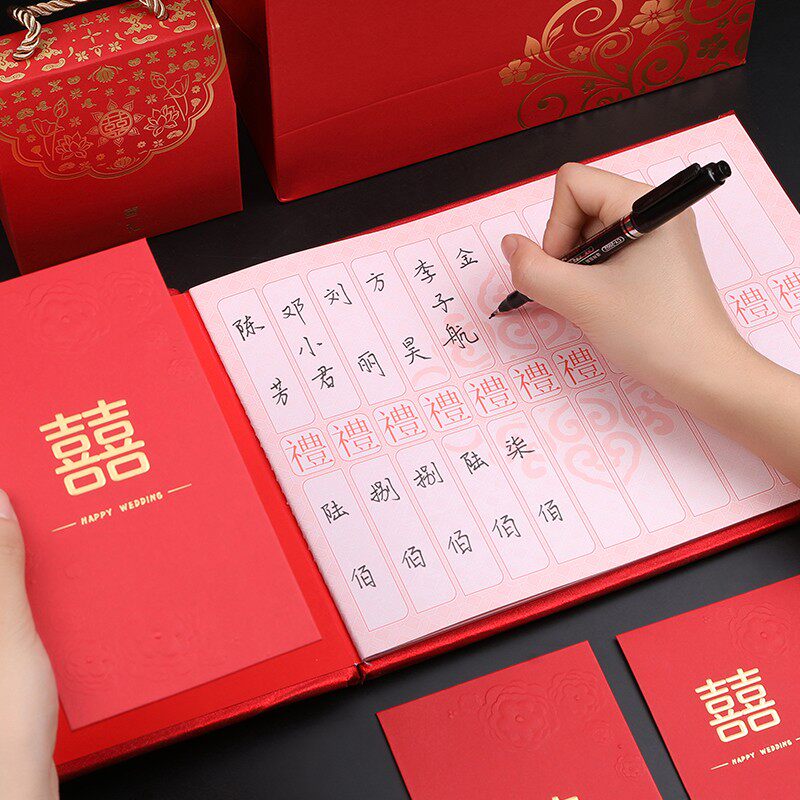 囍
囍
HAPPY WEDDING
陈芳
邓小君
刘丽
方昊
李子航
金
禮 禮 禮 禮 禮 禮 禮 禮 禮
陆佰
捌佰
捌佰
陆佰
柒佰
囍
HAPPY WEDDING